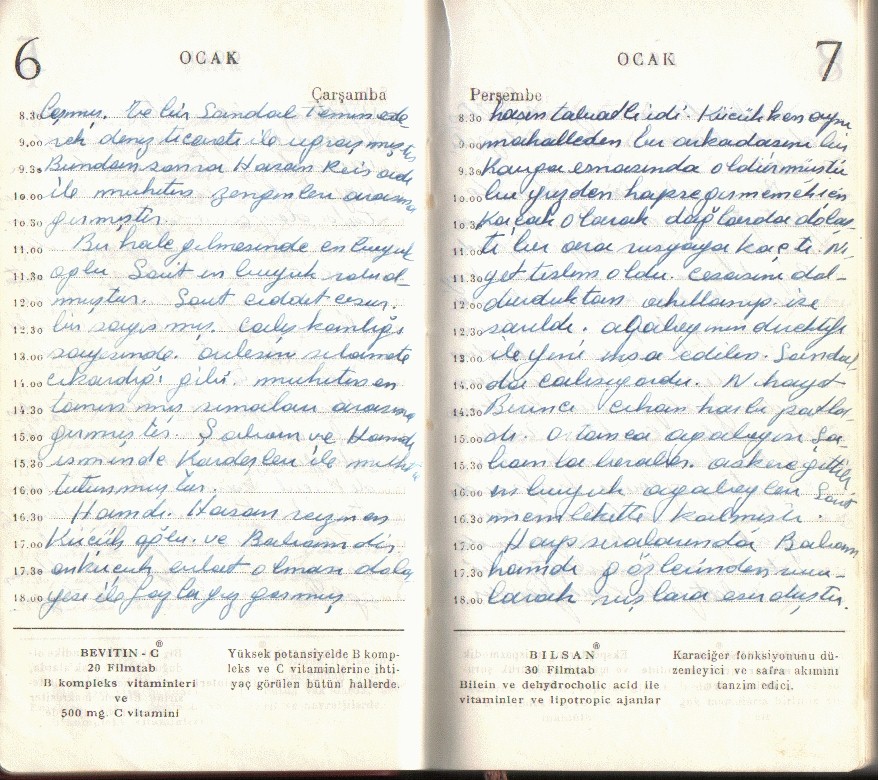 6
OCAK
Çarşamba
8.30 leşmiş. Ve bir Sandal Temin ede-
9.00 rek deniz ticareti ile uğraşmıştı
9.30 Bundan sonra Hasan Reis adı
10.00 ile muhitin zenginleri arasına
10.30 girmiştir.
11.00 Bu hale gelmesinde en büyük
11.30 oğlu Sait en büyük rol ol-
12.00 muştur. Sait ciddi cesur.
12.30 bir şayıs mış. Çalışkanlığı
13.00 sayesinde. ailesini selamete
14.00 çıkardığı gibi. muhitin en
14.30 tanınmış simaları arasına
15.00 girmiştir. Şaban ve Hamdi
15.30 isminde Kardeşleri ile
16.00 tutunmuştur.
16.30 Hamdi. Hasan reizin en
17.00 Küçük oğlu. ve Babanın da
17.30 en küçük evlat olması dola
18.00 yısı ile fazla
BEVITIN - C ®
20 Filmtab
B kompleks vitaminleri
ve
500 mg. C vitamini
Yüksek potansiyelde B komp-
leks ve C vitaminlerine ihti-
yaç görülen bütün hallerde.
OCAK
7
Perşembe
8.30 haşin tabiatli idi. Küçükken aynı
9.00 mahalleden bir arkadaşını bir
9.30 Kavga esnasında öldürmüştü
10.00 bu yüzden hapse girmemek için
10.30 Kaçak olarak dağlarda dolaş-
11.00 tı bir ara rusyaya kaçtı. Ni-
11.30 yet teslim oldu. cezasını dol-
12.00 durduktan akıllanıp işe
12.30 sarıldı. ağabeyinin
13.00 ile yeni inşa edilen. Sandal
14.00 da çalışıyordu. Nihayet
14.30 Birinci cihan harbi patla-
15.00 dı. O anca ağabeyisi Şa-
15.30 banla beraber. askere gittiler
16.00 en büyük ağabeyleri Sait
16.30 memlekette kalmıştı.
17.00 Harp sıralarında Babam
17.30 hamdi gözlerinden vuru-
18.00 larak ruslara esir düştü.
BILSAN ®
30 Filmtab
Bilein ve dehydrocholic acid ile
vitaminler ve lipotropic ajanlar
Karaciğer fonksiyonunu dü-
zenleyici ve safra akımını
tanzim edici.